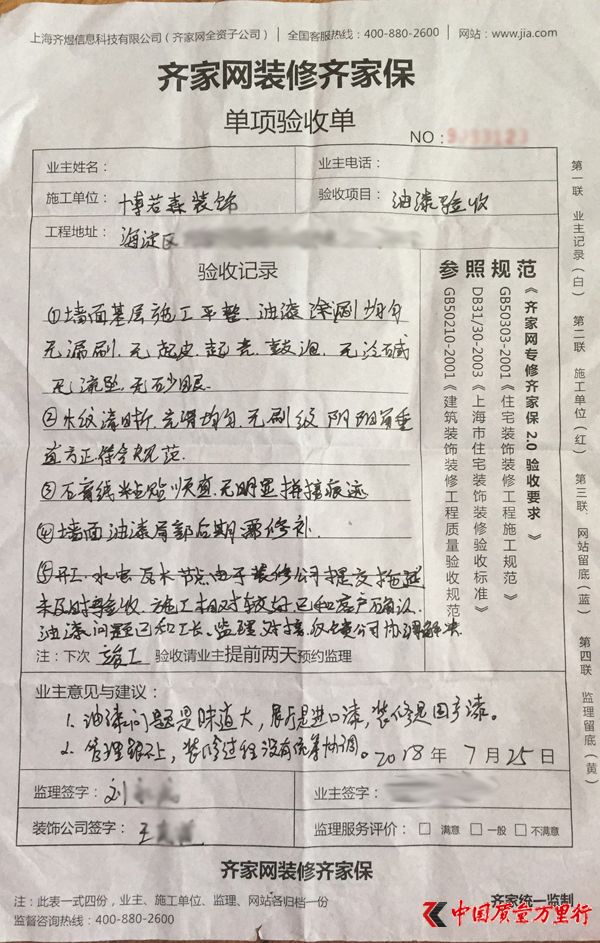 上海齐煜信息科技有限公司（齐家网全资子公司） | 全国客服热线：400-880-2600 | 网站：www.jia.com
齐家网装修齐家保
单项验收单
NO：
业主姓名： 业主电话：
施工单位：博若森装饰 验收项目：油漆验收
工程地址：海淀区
验收记录
①墙面基层施工平整，油漆涂刷均匀
无漏刷，无起皮、起壳、鼓泡，无泛碱
无流坠，无砂眼
②木纹清晰，光滑均匀，无刷纹，阴阳角垂
直方正符合规范
③石膏线粘贴顺直，无明显拼接痕迹
④墙面油漆局部后期需修补
⑤开工、水电、瓦木节点由于装修公司提交拖延
未及时验收，施工相对较好已和客户确认
油漆问题已和工长、监理对接，公司协调解决
注：下次 竣工 验收请业主提前两天预约监理
参照规范
《齐家网专修齐家保2.0验收要求》
GB50303-2001《住宅装饰装修工程施工规范》
DB31/30-2003《上海市住宅装饰装修验收标准》
GB50210-2001《建筑装饰装修工程质量验收规范》
第一联 业主记录（白） 第二联 施工单位（红） 第三联 网站留底（蓝） 第四联 监理留底（黄）
业主意见与建议：
1. 油漆问题是味道大，展厅是进口漆，装修是国产漆。
2. 管理跟不上，装修过程没有统筹协调。2018年7月25日
监理签字：刘 业主签字：
装饰公司签字：王 监理服务评价：□ 满意 □ 一般 □ 不满意
齐家网装修齐家保
注：此表一式四份，业主、施工单位、监理、网站各归档一份 齐家统一监制
监督咨询热线：400-880-2600
中国质量万里行